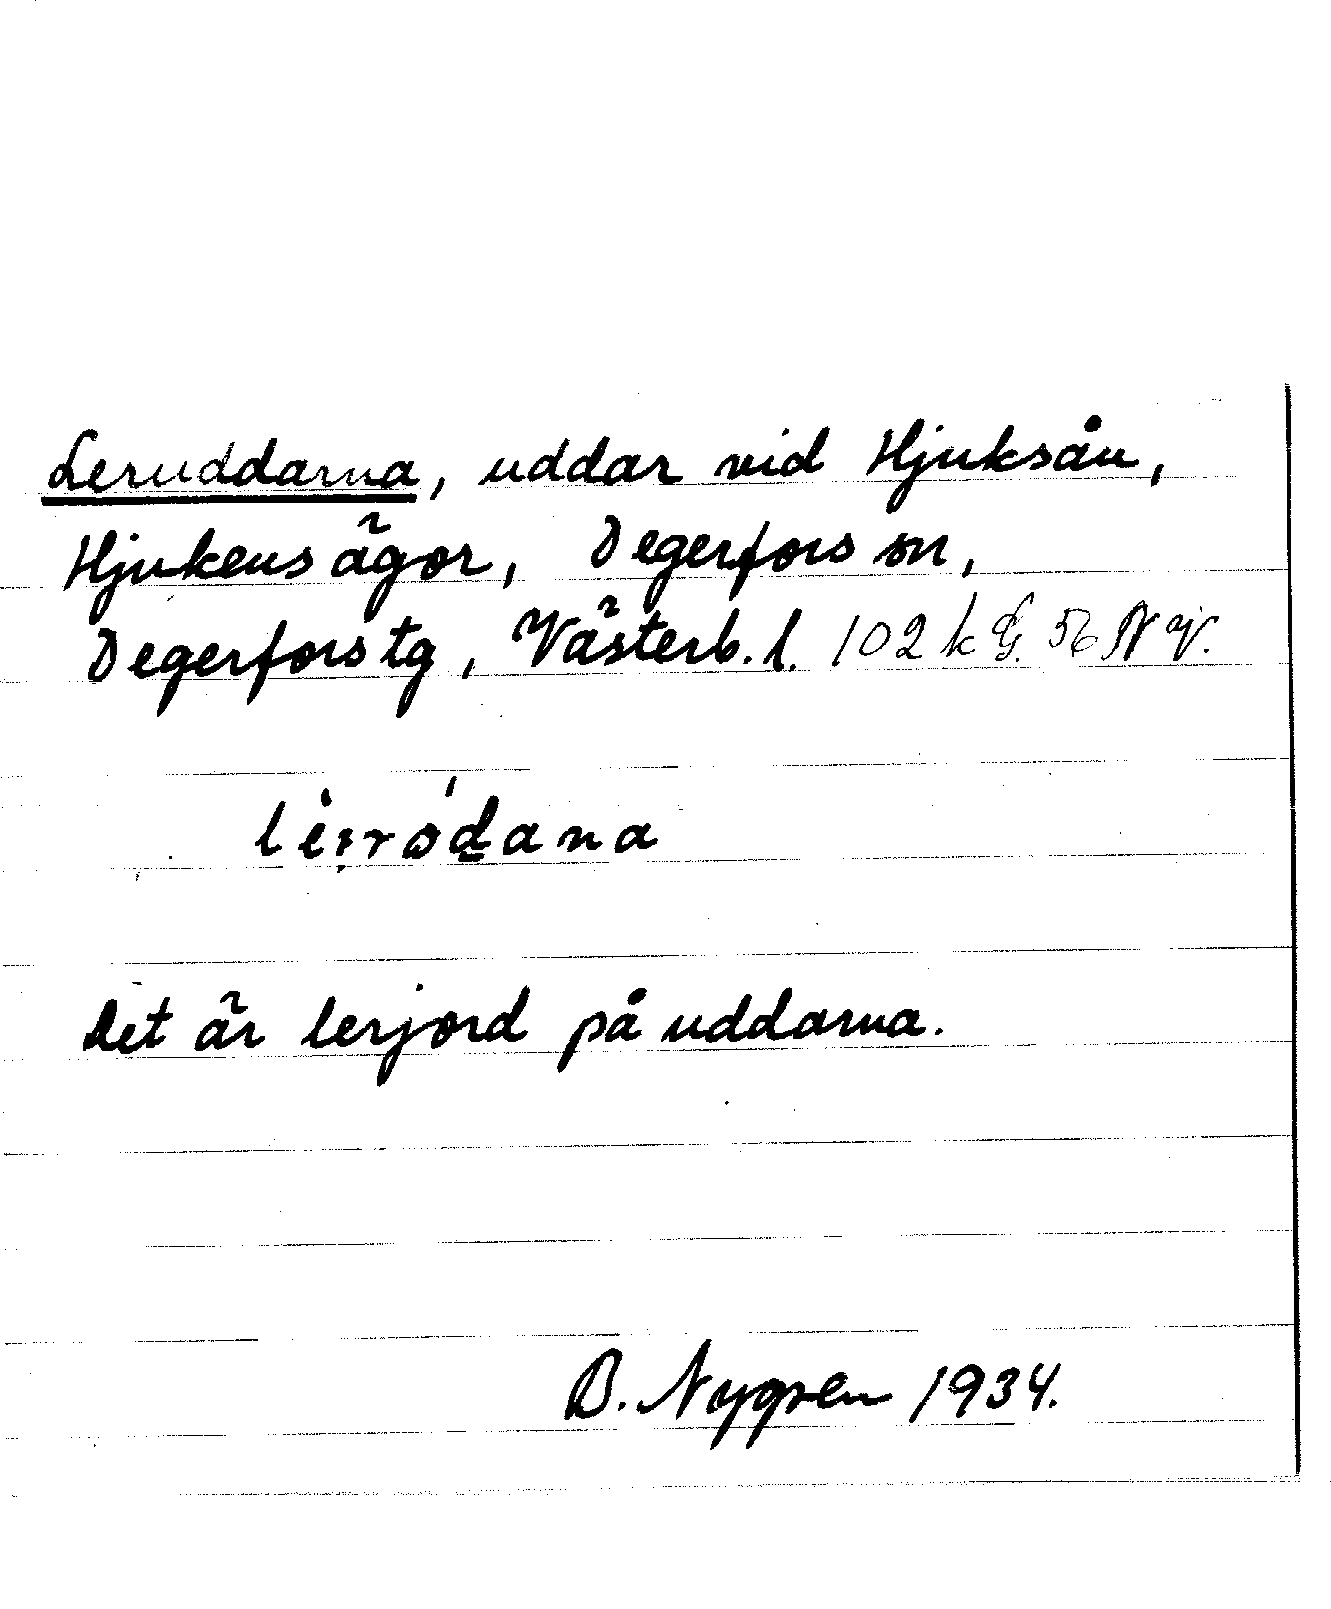 Leruddarna, uddar vid Hjuksån,
Hjukens ägor, Degerfors sn,
Degerfors tg, Västerb. l. 102 k G. 56 NV.
Det är lerjord på uddarna.
B. Nygren 1934.